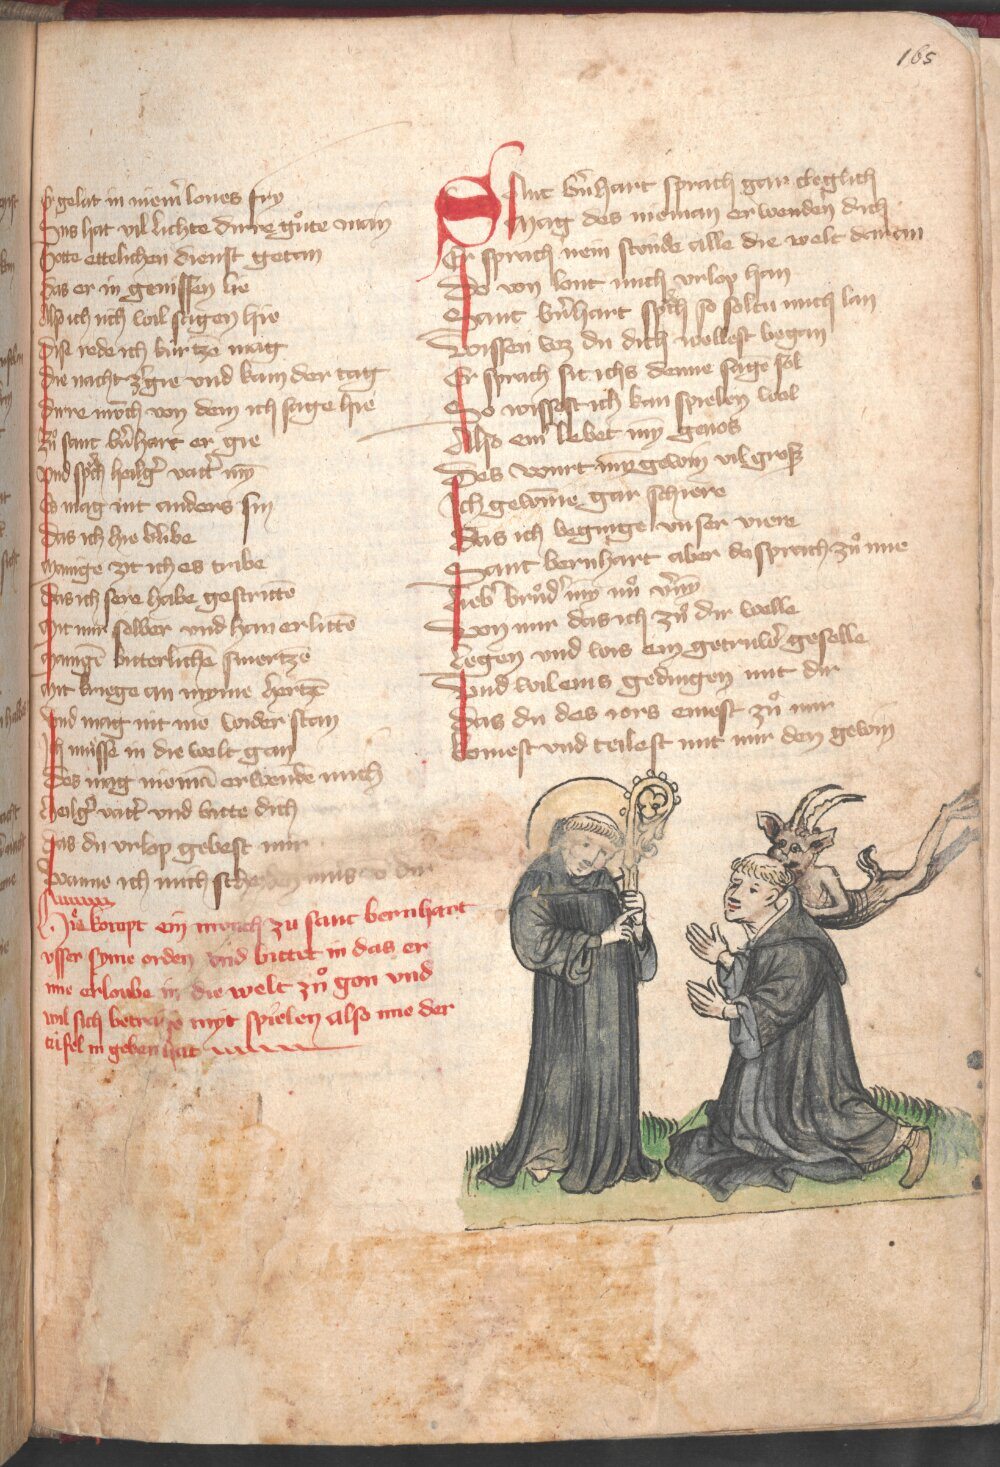 165
Er gelat in niem̄ lones fry
Vns hat vil lichte dirre gůte man
Gotte ettelichen dienst getan
Das er in genissen lie
Also ich üch wil sagen hie
Dise rede ich kürtzē mag
Die nacht zˢgie vnd kam der tag
Dirre mōch von dem ich sage hie
Zů sant bˢnhart er gie
Vnd spͣch heilgˢ vattˢ mȳ
Es mag nit anders sin
Das ich hie blibe
Mainge zit ich es tribe
Das ich sere habe gestrittē
Mit mir selber vnd han erlittē
Maingē bitterlichē smertzē
Mit kriege an myme hertzē
Vnd mag nit me wider stan
Ich mússē in die welt gan
Des mag niemā erwendē mich
Heilgˢ vattˢ vnd bitte dich
Das du vrlop gebest mir
Wanne ich mich scheiden mus vō dir
Hie kompt ein mönch zu sant bernhart
vsser syme orden vnd bittet in das er
ime erloube in die welt zů gon vnd
wil sich betragē myt spielen also ime der
tüfel in geben hat
Sant bˢnhart sprach gar cleglich
Mag des nieman erwenden dich
Er sprach nein stünde alle die welt daran
Do von lant mich vrlop han
Sant bˢnhart spͣch so soltu mich lan
Wissen wz du dich wellest began
Er sprach sit ichs denne sage sol
So wissest ich kan spielen wol
Also ein lebet my genos
Des wurt mȳ gewin vil gros
Ich gewinne gar schiere
Das ich beginge vnser viere
Sant bernhart aber do sprach zů ime
Liebˢ brůdˢ mȳ nů vˢnȳ
Von mir das ich zů dir welle
Legen vnd wis ein getruwˢ geselle
Vnd wil eins gedingen mit dir
Das du des iors einest zů mir
Komest vnd teilest mit mir den gewin